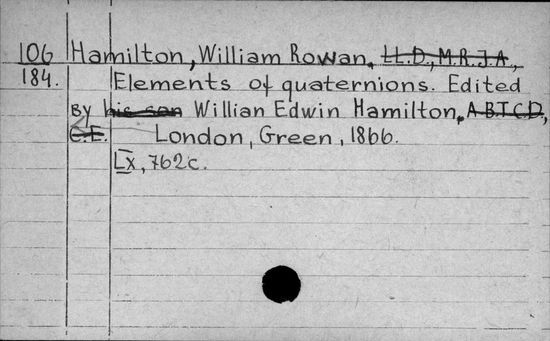 106 Hamilton, William Rowan. LL.D., M.R.J.A.,
184. Elements of quaternions. Edited
by his son Willian Edwin Hamilton, A.B.T.C.D,
C.E. London, Green, 1866.
LX, 762c.